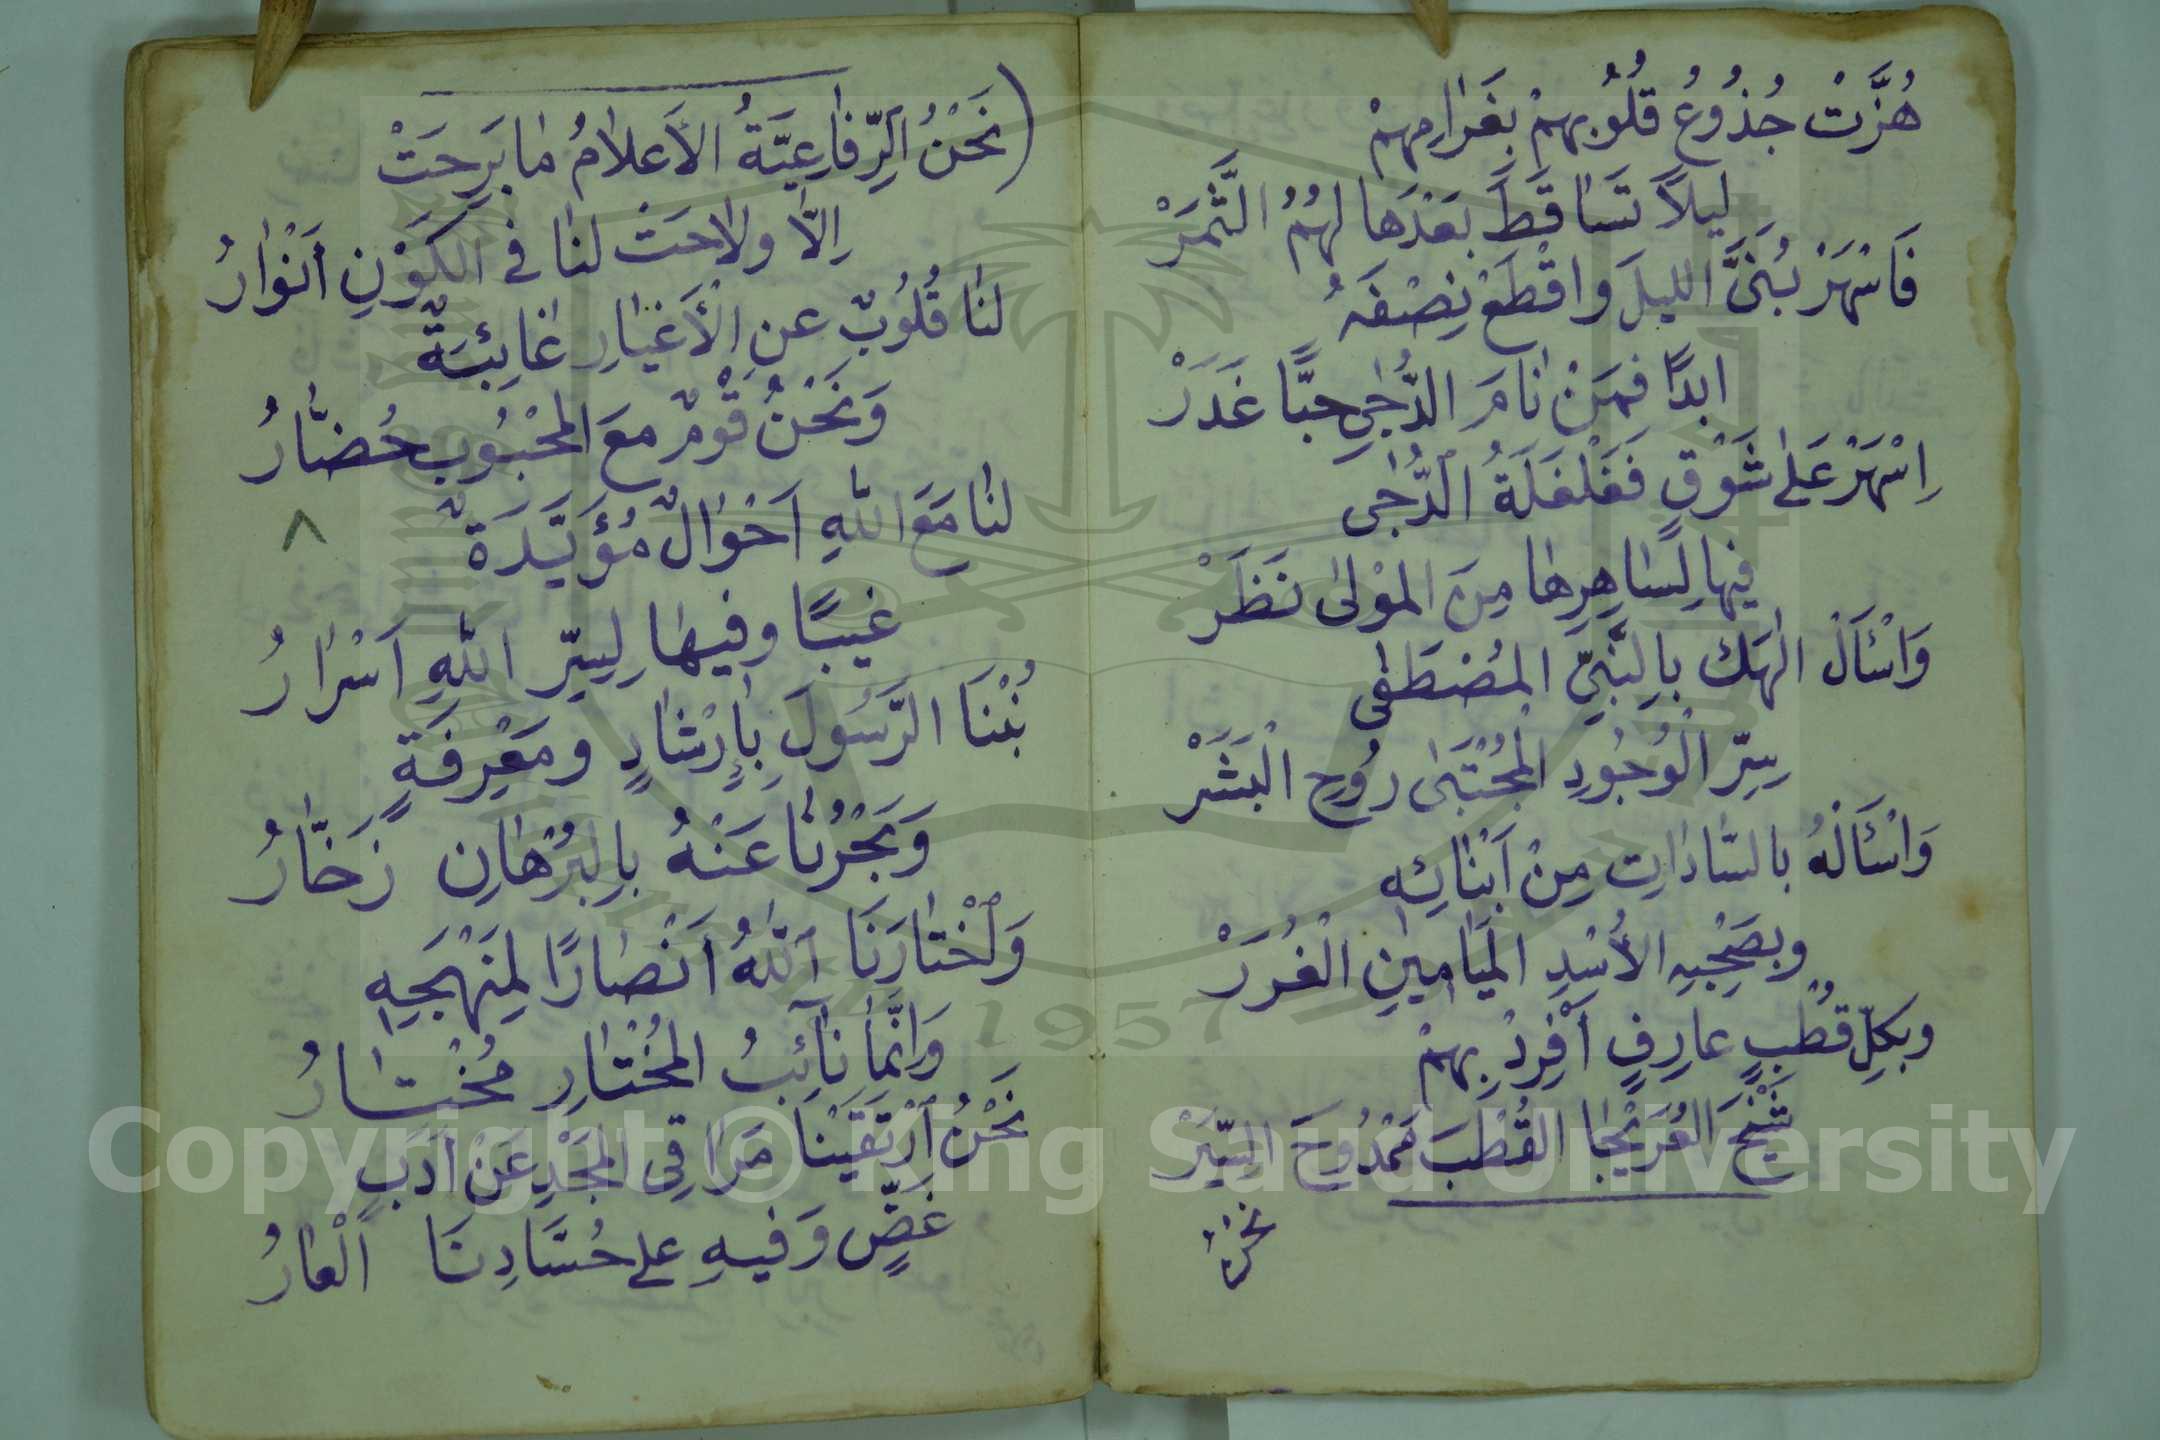 هُزَّتْ جُذُوعُ قُلُوبِهِمْ بِغَرَامِهِمْ
لَيلاً تَسَاقَطَ بَعْدَهَا لَهُمُ الثَّمَرْ
فَاسْهَرْ بُنَيَّ الليلَ وَاقْطَعْ نِصْفَهُ
ابدًا فَمَنْ نَامَ الدُّجَى حِبًّا غَدَرْ
اِسْهَرْ عَلَى شَوْقٍ فَغَلْغَلَةُ الدُّجَى
فِيهَا لِسَاهِرِهَا مِنَ المَوْلَى نَظَرْ
وَاسْئَلْ الهَكَ بِالنَّبِيِّ المُصْطَفَى
سِرِّ الْوُجُودِ الْمُجْتَبَى رُوحِ الْبَشَرْ
وَاسْئَلْهُ بالسَّادَاتِ مِنْ اَبْنَائِهِ
وبِصَحْبِهِ الأُسْدِ الْمَيَامِينِ الْغُرَرْ
وبكلِّ قُطْبٍ عَارِفٍ اَفْرِدْ بِهِمْ
شَيْخَ العُرَيْجَا القُطْبَ مَمْدُوحَ السِّيَرْ
نحن
(نَحْنُ الرِّفَاعِيَّةُ الأَعلَامُ مَا بَرِحَتْ
اِلَّا ولَاحَتْ لنَا فِي الكَوْنِ أَنْوَارُ
لنَا قُلُوبٌ عنِ الْأَغيَارِ غَائِبَةٌ
وَنَحْنُ قَوْمٌ معَ المَحْبُوبِ حُضَّارُ
لنَا مَعَ اللّٰهِ اَحْوَالٌ مُؤَيَّدَةٌ
٨
غيبًا وفيهَا لِسِرِّ اللّٰهِ اَسْرَارُ
نُبْنَا الرَّسُولَ بِإِرْشَادٍ ومَعْرِفَةٍ
وَبَحْرُنَا عَنْهُ بِالبُرْهَانِ زَخَّارُ
وَاخْتَارَنَا اللّٰهُ اَنْصَارًا لِمَنْهَجِهِ
وَاِنَّمَا نَآئِبُ المُخْتَارِ مُخْتَارُ
نَحْنُ ارْتَقَيْنَا مَرَاقِي المَجْدِ عَنْ اَدَبٍ
غَضٍّ وَفيهِ على حُسَّادِنَا الْعَارُ
Copyright © King Saud University
1957